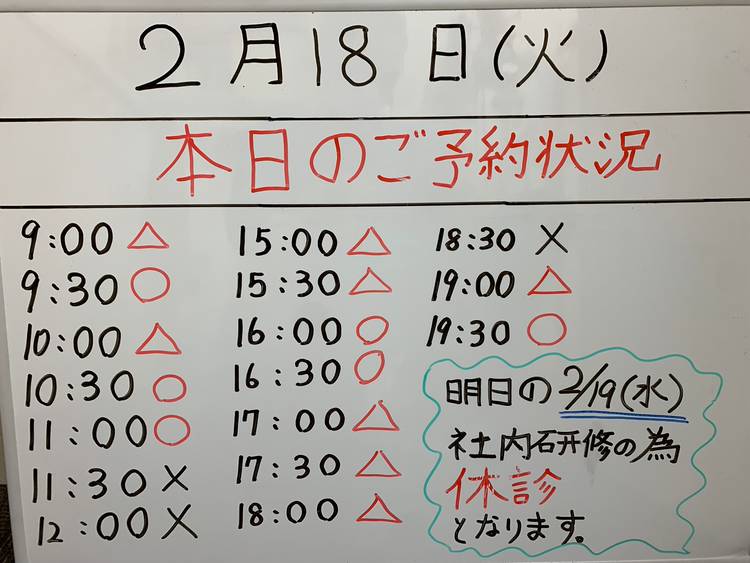 2月18日(火)
本日のご予約状況
9:00 △
9:30 ○
10:00 △
10:30 ○
11:00 ○
11:30 ×
12:00 ×
15:00 △
15:30 △
16:00 ○
16:30 ○
17:00 △
17:30 △
18:00 △
18:30 ×
19:00 △
19:30 ○
明日の2/19(水)
社内研修の為
休診
となります。